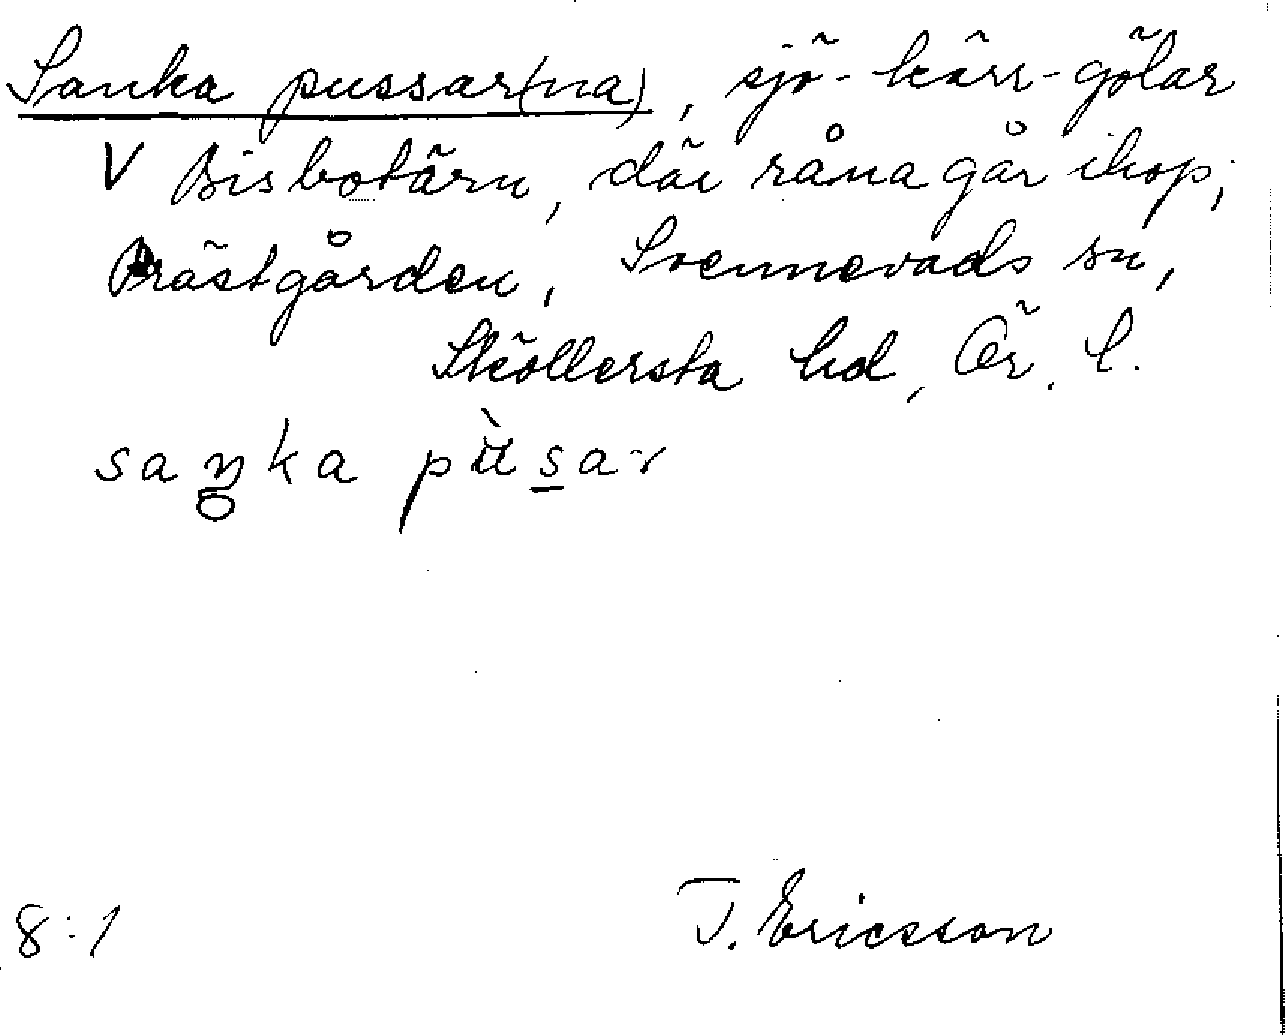 Sanka pussar(na), sjö-kärr-gölar
V Bisbotärn, där råna går ihop;
Prästgården, Svennevads sn,
Sköllersta hd, Ör. l.
saŋka pùsar
8:1 T. Ericsson